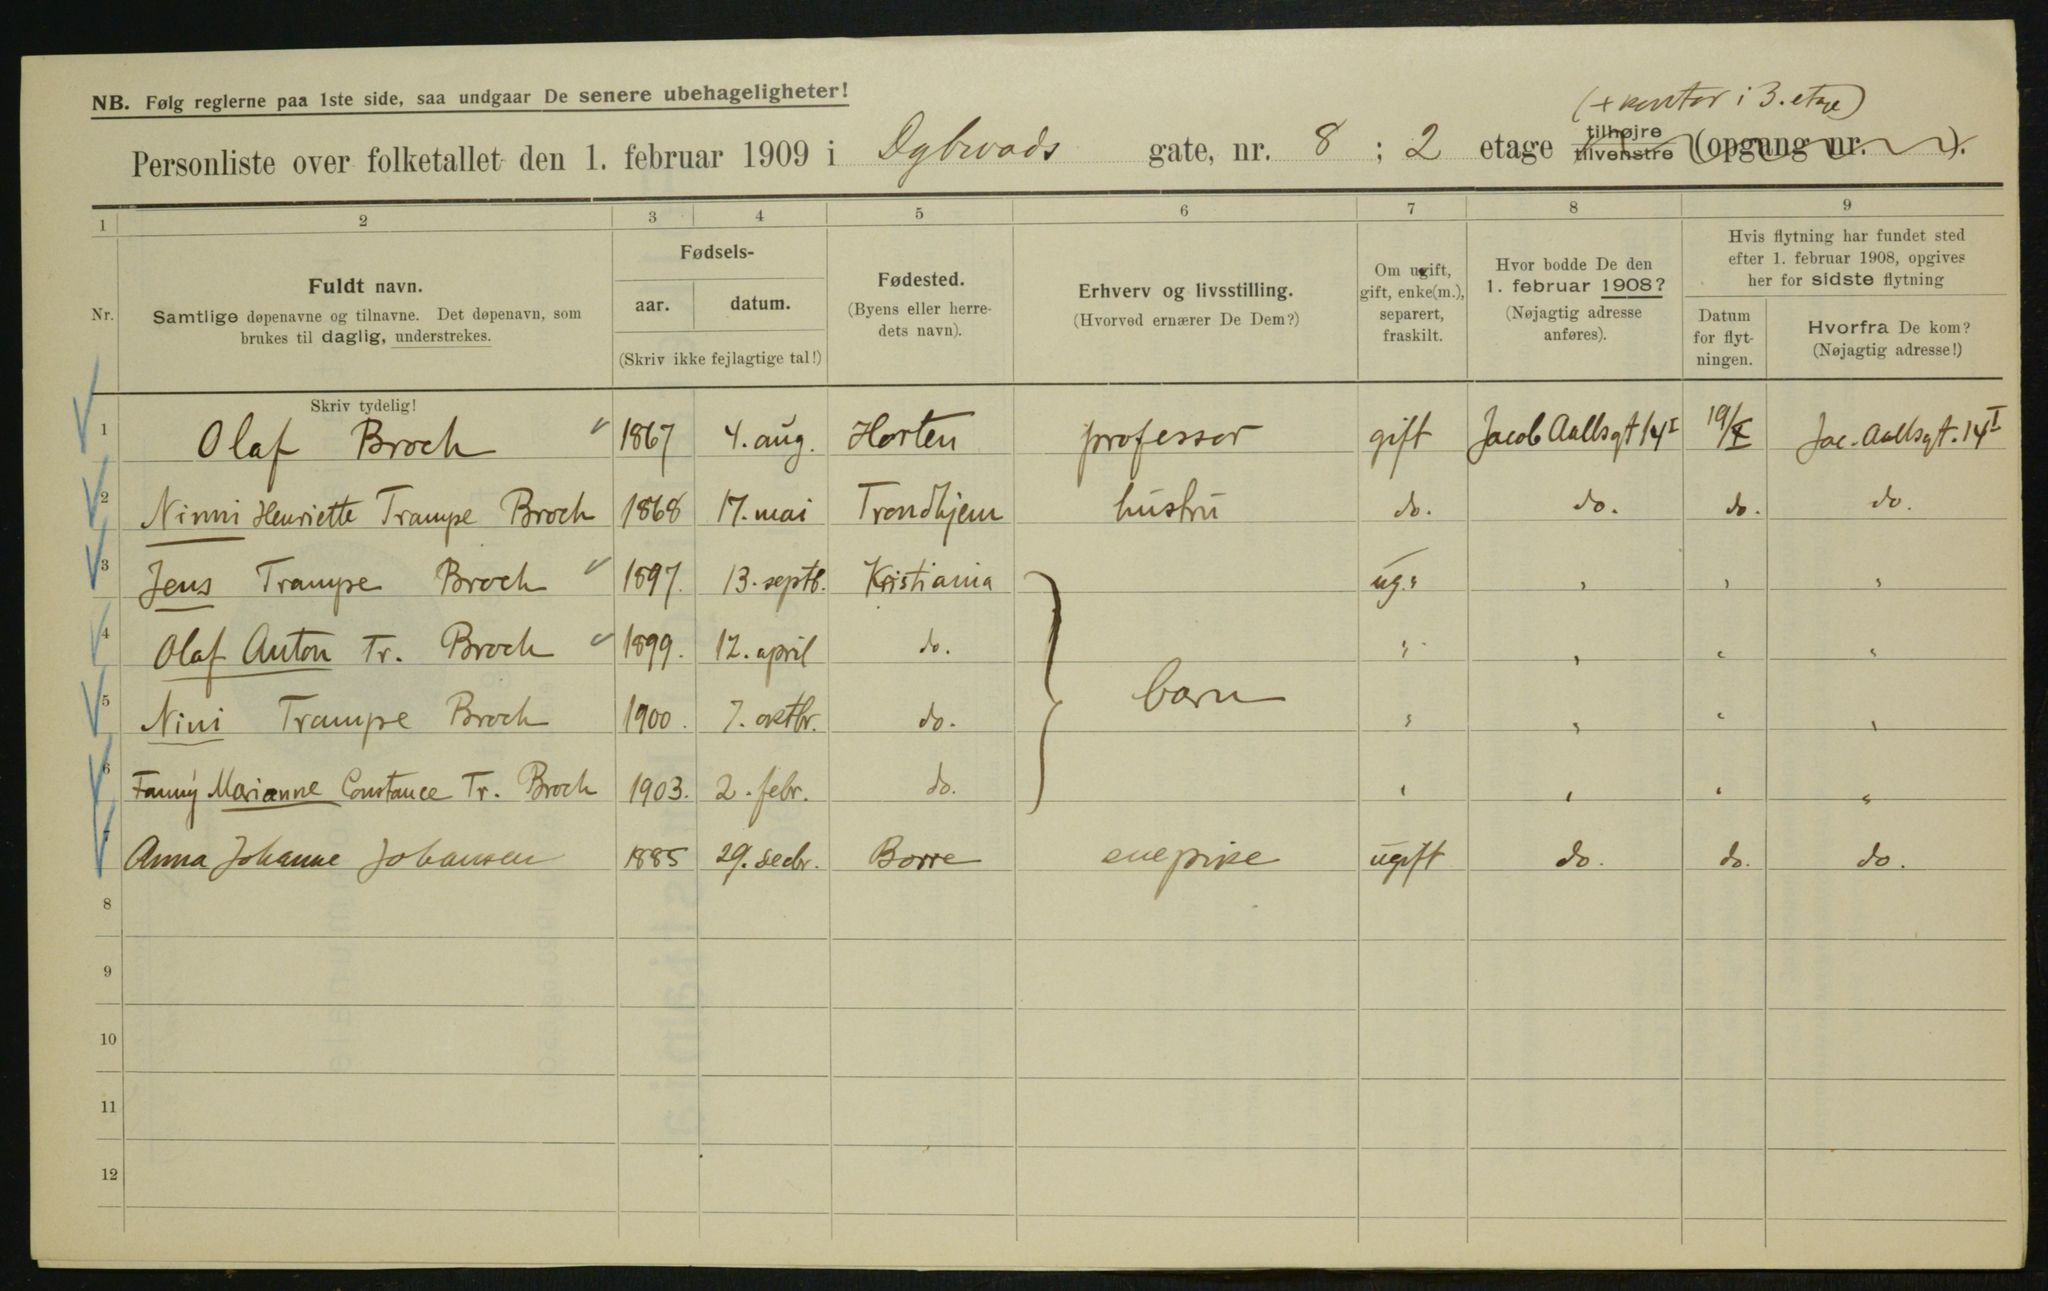 NB. Følg reglerne paa 1ste side, saa undgaar De senere ubehageligheter!
(+ kontor i 3. etage)
Personliste over folketallet den 1. februar 1909 i Dybwads gate, nr. 8 ; 2 etage tilhøjre tilvenstre (opgang nr. ).
1 2 3 4 5 6 7 8 9
Nr.
Fuldt navn.
Samtlige døpenavne og tilnavne. Det døpenavn, som
brukes til daglig, understrekes.
Skriv tydelig!
Fødsels-
aar. datum.
(Skriv ikke fejlagtige tal!)
Fødested.
(Byens eller herre-
dets navn).
Erhverv og livsstilling.
(Hvorved ernærer De Dem?)
Om ugift,
gift, enke(m.),
separert,
fraskilt.
Hvor bodde De den
1. februar 1908?
(Nøjagtig adresse
anføres).
Hvis flytning har fundet sted
efter 1. februar 1908, opgives
her for sidste flytning
Datum
for flyt-
ningen.
Hvorfra De kom?
(Nøjagtig adresse!)
1 Olaf Broch 1867 4. aug. Horten professor gift Jacob Aallsgt 14 I 19/X Jac. Aallsgt. 14 I
2 Ninni Henriette Trampe Broch 1868 17. mai Trondhjem hustru do. do. do. do.
3 Jens Trampe Broch 1897. 13. septb. Kristiania ug. " " " "
4 Olaf Anton Tr. Broch 1899. 12. april do. " " " "
barn
5 Nini Trampe Broch 1900. 7. oktbr. do. " " " "
6 Fanny Marianne Constance Tr. Broch 1903. 2. febr. do. " " " "
7 Anna Johanne Johansen 1885 29. decbr. Borre enepike ugift do. do. do.
8
9
10
11
12